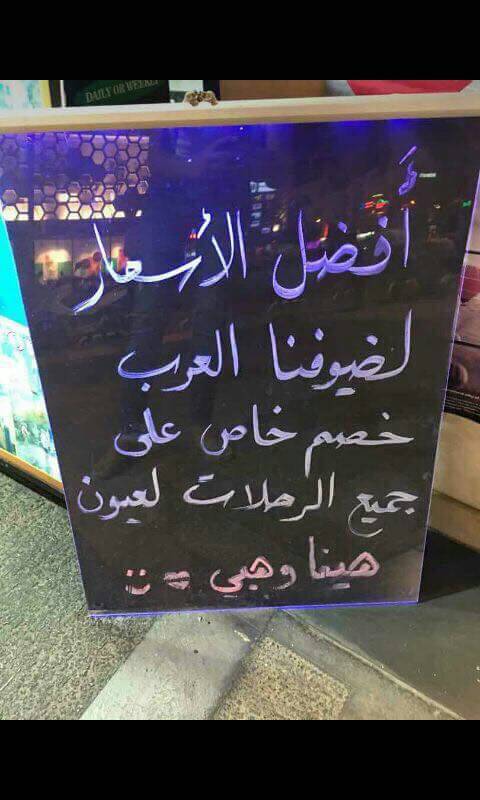 DAILY OR WEEKLY
أَفضل الأسعار
لضيوفنا العرب
خصم خاص على
جميع الرحلات لعيون
هيفا وهبي